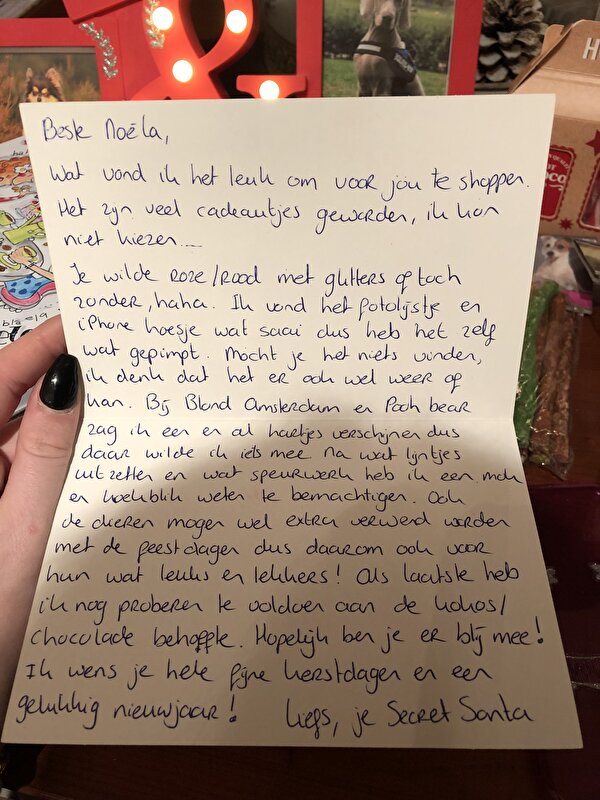 Beste Noëla,
Wat vond ik het leuk om voor jou te shoppen.
Het zijn veel cadeautjes geworden, ik kon
niet kiezen...
Je wilde roze/rood met glitters of toch
zonder, haha. Ik vond het fotolijstje en
iPhone hoesje wat saai dus heb het zelf
wat gepimpt. Mocht je het niets vinden,
ik denk dat het er ook wel weer op
kan. Bij Blond Amsterdam en Pooh bear
zag ik een en al hartjes verschijnen dus
daar wilde ik iets mee. Na wat lijntjes
uitzetten en wat speurwerk heb ik een mok
en koekblik weten te bemachtigen. Ook
de dieren mogen wel extra verwend worden
met de feestdagen dus daarom ook voor
hun wat leuks en lekkers! Als laatste heb
ik nog proberen te voldoen aan de kokos/
chocolade behoefte. Hopelijk ben je er blij mee!
Ik wens je hele fijne kerstdagen en een
gelukkig nieuwjaar! Liefs, je Secret Santa